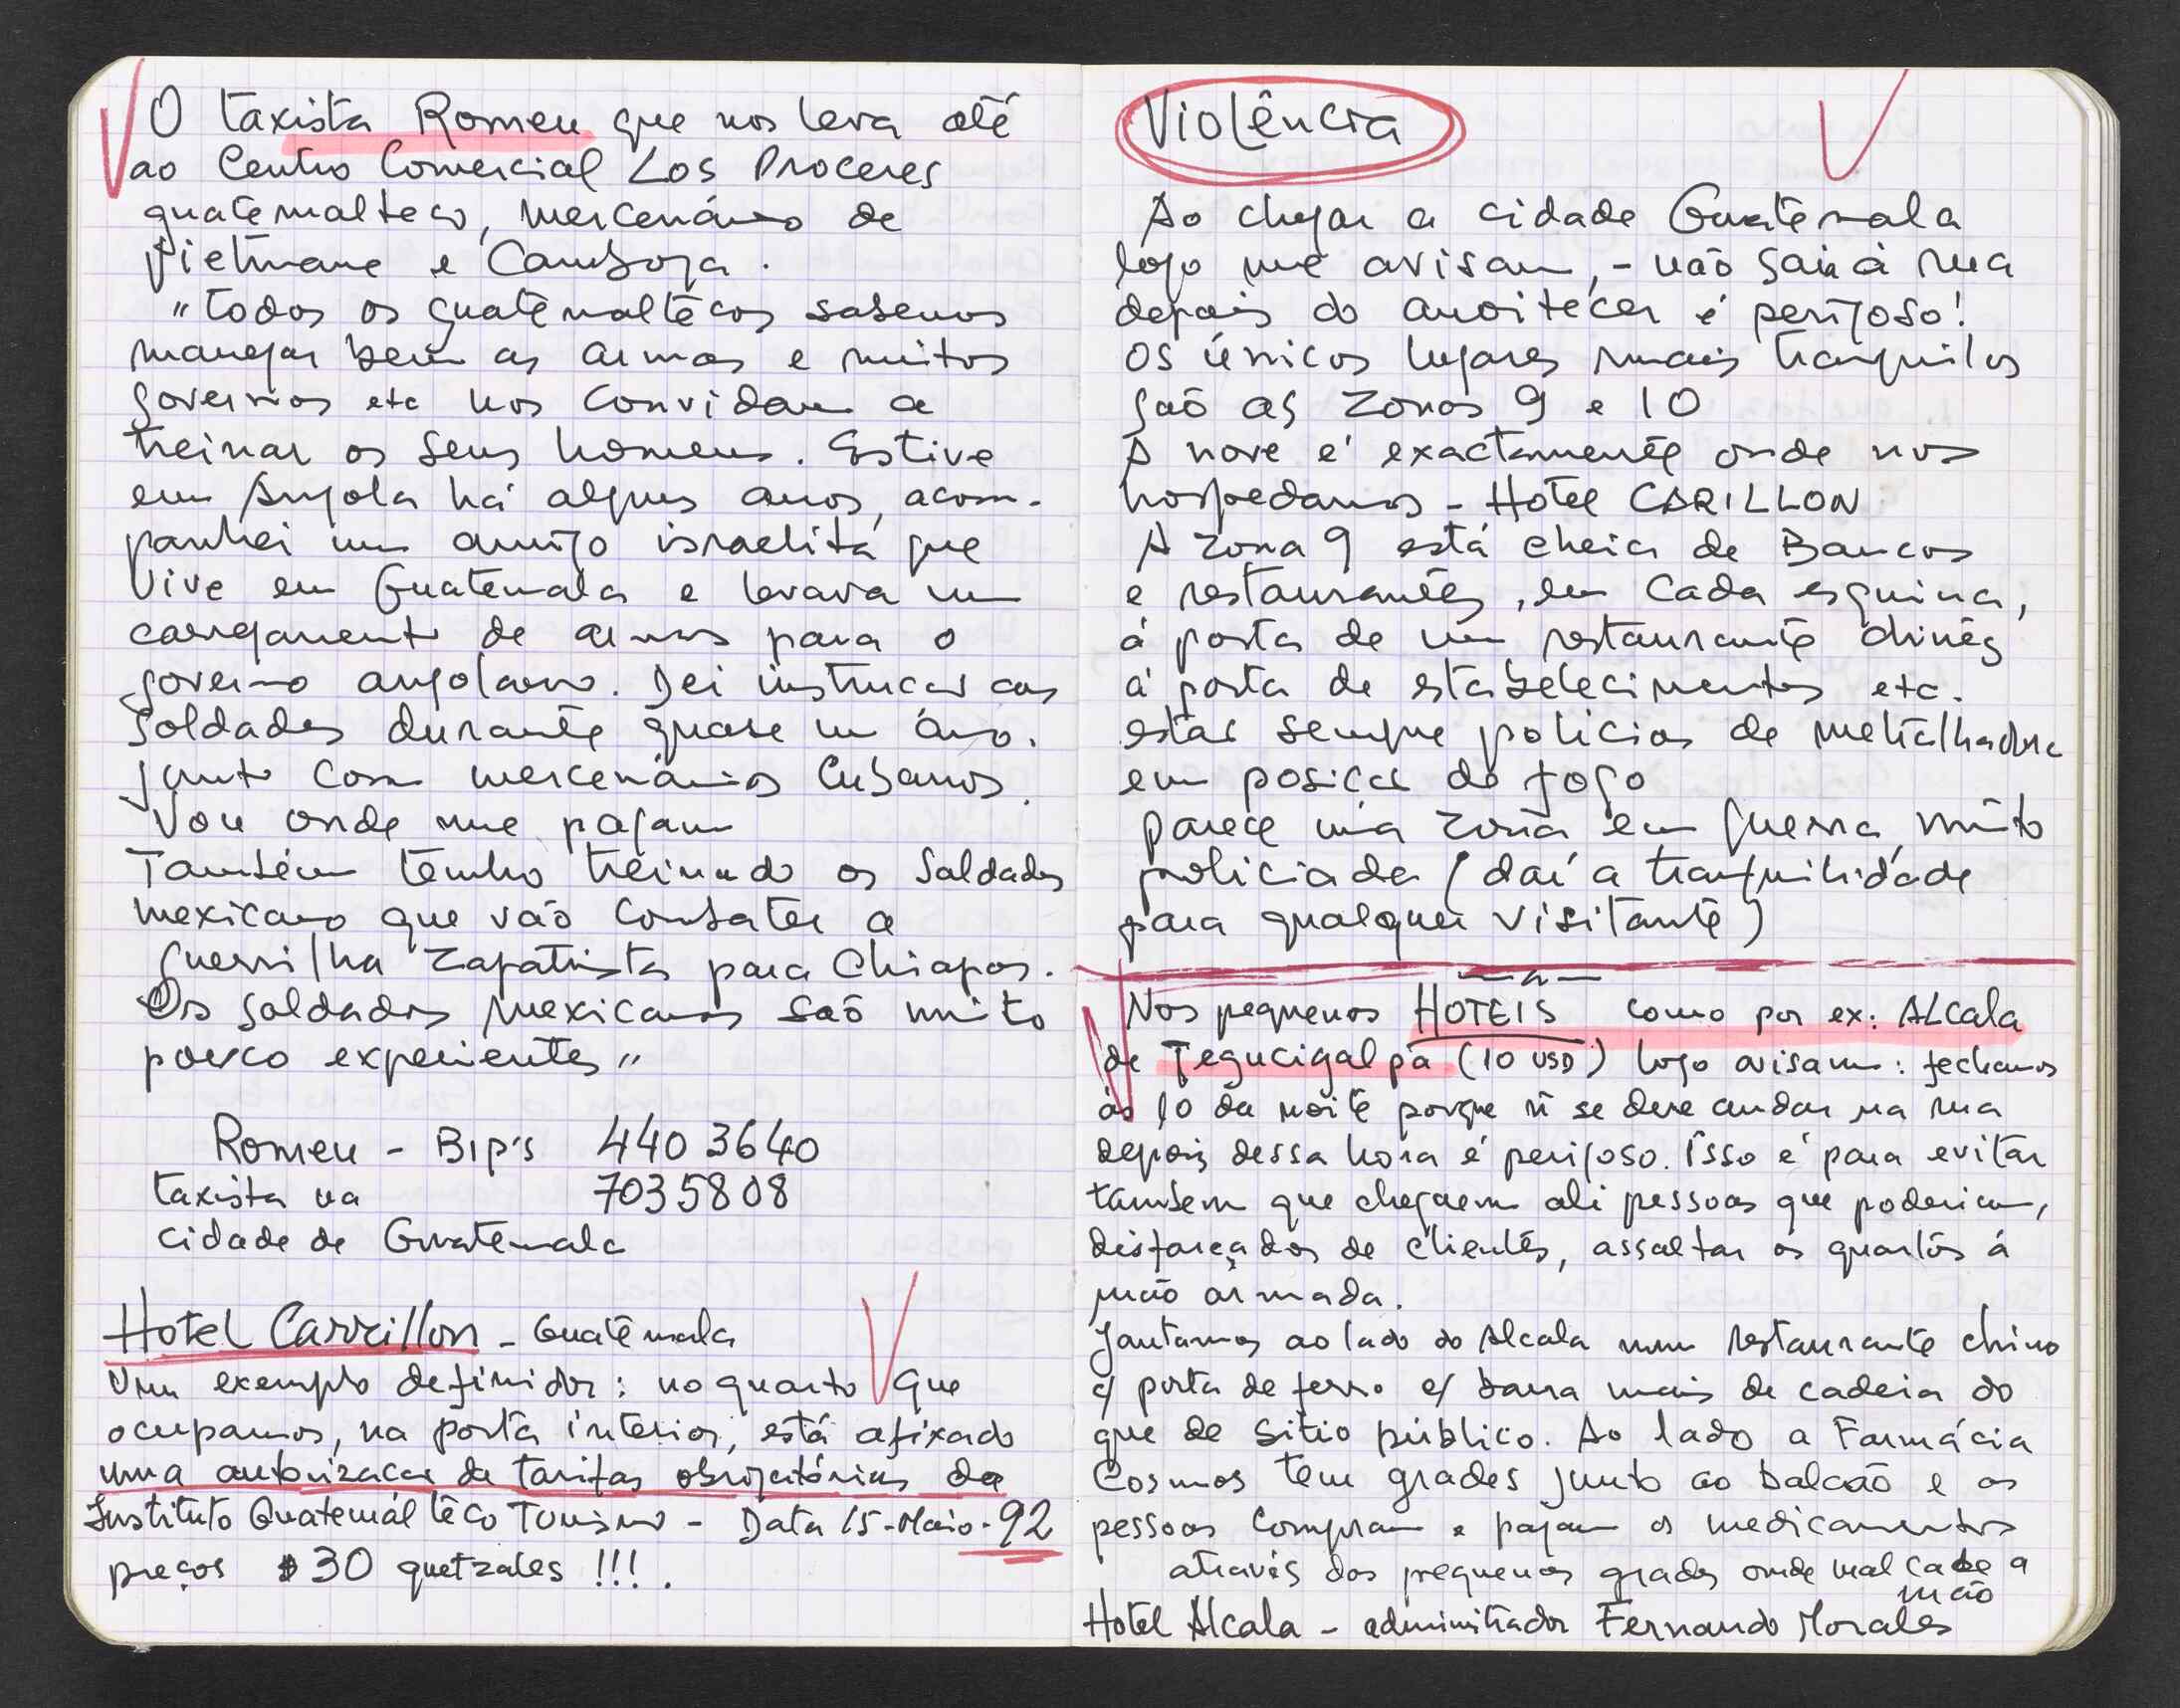 O taxista Romeu que nos leva até
ao Centro Comercial Los Proceres
guatemalteco, mercenário de
Vietname e Camboja.
"todos os guatemaltecos sabemos
manejar bem as armas e muitos
governos etc nos convidam a
treinar os seus homens. Estive
em Angola há alguns anos, acom-
panhei um amigo israelita que
vive em Guatemala e levava um
carregamento de armas para o
governo angolano. Dei instrução aos
soldados durante quase um ano.
junto com mercenários Cubanos.
Vou onde me pagam
Também tenho treinado os soldados
mexicano que vão combater a
guerrilha zapatista para Chiapas.
Os soldados mexicanos são muito
pouco experientes"
Romeu - Bip's 440 3640
taxista na 7035808
cidade de Guatemala
Hotel Carrillon - Guatemala
Um exemplo definidor: no quarto que
ocupamos, na porta interior, está afixado
uma autorização de tarifas obrigatórias do
Instituto Guatemálteco Turismo - Data 15-Maio-92
preços $30 quetzales !!!.
Violência
Ao chegar a cidade Guatemala
logo me avisam, - não saia à rua
depois do anoitecer é perigoso!
os únicos lugares mais tranquilos
são as zonas 9 e 10
A nove é exactamente onde nos
hospedamos - Hotel CARILLON
A zona 9 está cheia de Bancos
e restaurantes, em cada esquina,
à porta de um restaurante chinês
à porta de estabelecimentos etc.
estão sempre polícias de metralhadora
em posição de fogo
parece uma zona em guerra, muito
policiada (daí a tranquilidade
para qualquer visitante)
Nos pequenos HOTEIS como por ex: ALCala
de Tegucigalpa (10 USD) logo avisam: fechamos
às 10 da noite porque ñ se deve andar na rua
depois dessa hora é perigoso. Isso é para evitar
tambem que cheguem ali pessoas que poderiam,
disfarçados de clientes, assaltar os quartos à
mão armada.
Jantamos ao lado do Alcala num restaurante chino
c/ porta de ferro c/ barra mais de cadeia do
que de sitio público. Ao lado a Farmácia
Cosmos tem grades junto ao balcão e as
pessoas compram e pagam os medicamentos
através das pequenas grades onde mal cabe a
mão
Hotel Alcala - administrador Fernando Morales